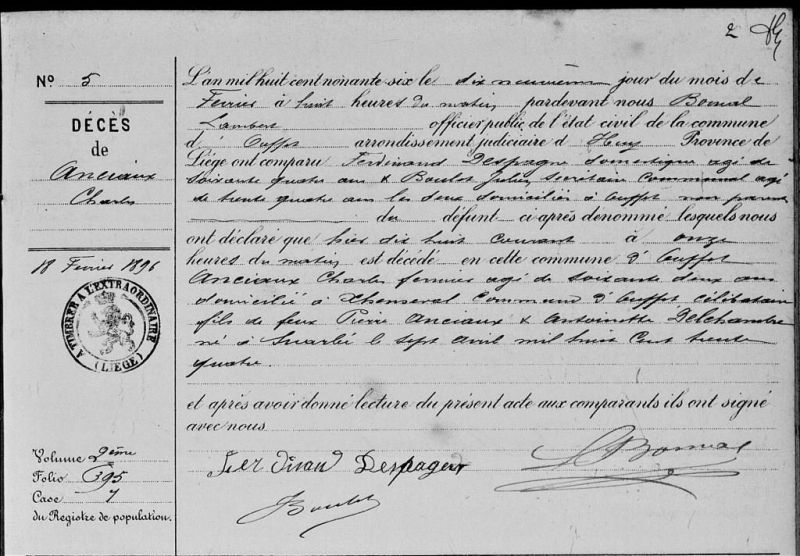 2
Nº 5
DÉCÈS
de
Anciaux
Charles
18 Fevrier 1896
A TIMBRER A L'EXTRAORDINAIRE
(LIÈGE)
Volume 2ème
Folio 395
Case 7
du Registre de population.
L'an mil huit cent nonante six le dix neuvième jour du mois de
Fevrier à huit heures du matin pardevant nous Bonnal
Lambert officier public de l'état civil de la commune
d'Ouffet arrondissement judiciaire d Huy Province de
Liège ont comparu Ferdinand Despagne domestique agé de
soixante quatre ans & Boulot Julien secrétaire communal agé
de trente quatre ans les deux domiciliés à Ouffet non parents
du défunt ci après denommé lesquels nous
ont déclaré que hier dix huit courant à onze
heures du matin est décédé en cette commune d'Ouffet
Anciaux Charles fermier agé de soixante deux ans
domicilié à commune d'Ouffet célibataire
fils de feux Pierre Anciaux & Antoinette Delchambre
né à Suarlée le sept avril mil huit cent trente
quatre.
et après avoir donné lecture du présent acte aux comparants ils ont signé
avec nous
Fer dinand Despagne
Boulot